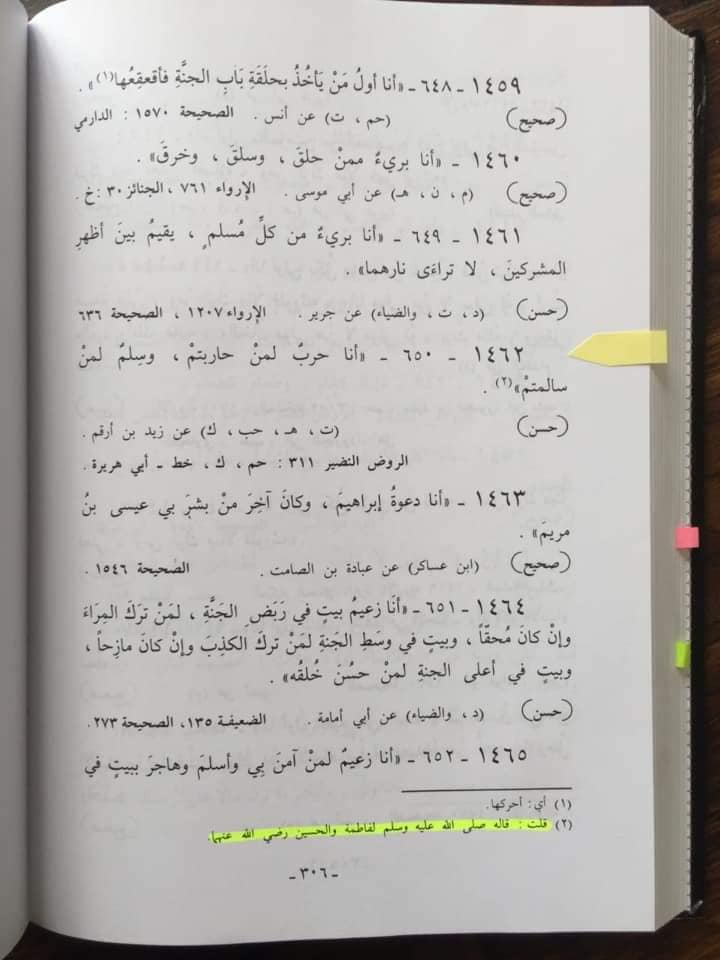 ١٤٥٩ - ٦٤٨ - «أنا أولُ مَنْ يَأخُذُ بحلَقَةِ بَابِ الجنَّةِ فأقعقِعُها(١)» .
(صحيح) (حم ، ت) عن أنس . الصحيحة ١٥٧٠ : الدارمي
١٤٦٠ - «أنا بريءٌ ممنْ حلقَ ، وسلقَ ، وخرقَ» .
(صحيح) (م ، ن ، هـ) عن أبي موسى . الإرواء ٧٦١ ، الجنائز ٣٠ :خ .
١٤٦١ - ٦٤٩ - «أنا بريءٌ من كلِّ مُسلمٍ ، يقيمُ بينَ أظهرِ
المشركينَ ، لا تراءَى نارهما» .
(حسن) (د ، ت ، والضياء) عن جرير . الإرواء ١٢٠٧ ، الصحيحة ٦٣٦
١٤٦٢ - ٦٥٠ - «أنا حربٌ لمنْ حاربتمْ ، وسِلمٌ لمنْ
سالمتمْ»(٢) .
(حسن) (ت ، هـ ، حب ، ك) عن زيد بن أرقم .
الروض النضير ٣١١ : حم ، ك ، خط - أبي هريرة .
١٤٦٣ - «أنا دعوةُ إبراهيمَ ، وكانَ آخِرَ منْ بشرَ بي عيسى بنُ
مريمَ» .
(صحيح) (ابن عساكر) عن عبادة بن الصامت . الصحيحة ١٥٤٦ .
١٤٦٤ - ٦٥١ - «أنَا زعيمُ بيتٍ في رَبَضِ الجَنَّةِ ، لمَنْ تركَ المِرَاءَ
وإنْ كانَ مُحقّاً ، وبيتٍ في وسَطِ الجَنةِ لمَنْ تركَ الكذِبَ وإنْ كانَ مازِحاً ،
وبيتٍ في أعلى الجنةِ لمنْ حسُنَ خُلقُه» .
(حسن) (د ، والضياء) عن أبي أمامة . الضعيفة ١٣٥، الصحيحة ٢٧٣.
١٤٦٥ - ٦٥٢ - «أنا زعيمٌ لمنْ آمنَ بِي وأسلمَ وهاجرَ ببيتٍ في
(١) أي: أحركها.
(٢) قلت : قاله صلى الله عليه وسلم لفاطمة والحسين رضي الله عنهما.
- ٣٠٦ -